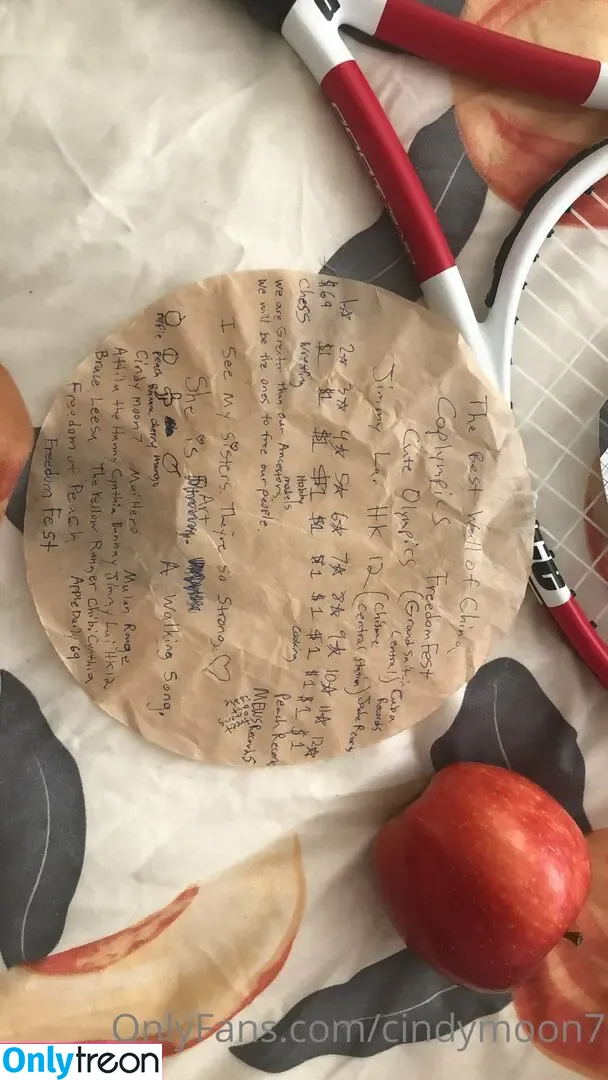 The Best Wall of China,
Coplympics FreedomFest
Cute Olympics (Grand Sultin Central) Cuba Records
Jimmy Lai HK 12 (Chinese Central Station)
1☆ 2☆ 3☆ 4☆ 5☆ 6☆ 7☆ 8☆ 9☆ 10☆ 11☆ 12☆
$69 $1 $1 $1 $1 $1 $1 $1 $1 $1 $1 $1
Chess Wrestling Models Hobby Cooking Peach Records
We are Greater than our Ancestors,
we will be the ones to free our people.
MEWS Records
I See My Sisters, They're so Strong, ♡
She is Art A Walking Song,
Apple Peach Banana cherry mango
Cindy Moon 7 Mai Hero Mulan Rouge
Attila the Hunny Cynthia Bunnay Jimmy Lai HK12
Bruce Leesy The Yellow Ranger Chibi Cynthia
Freedom of Peach Apple Daily 69
Freedom Fest
OnlyFans.com/cindymoon7
Onlytreon